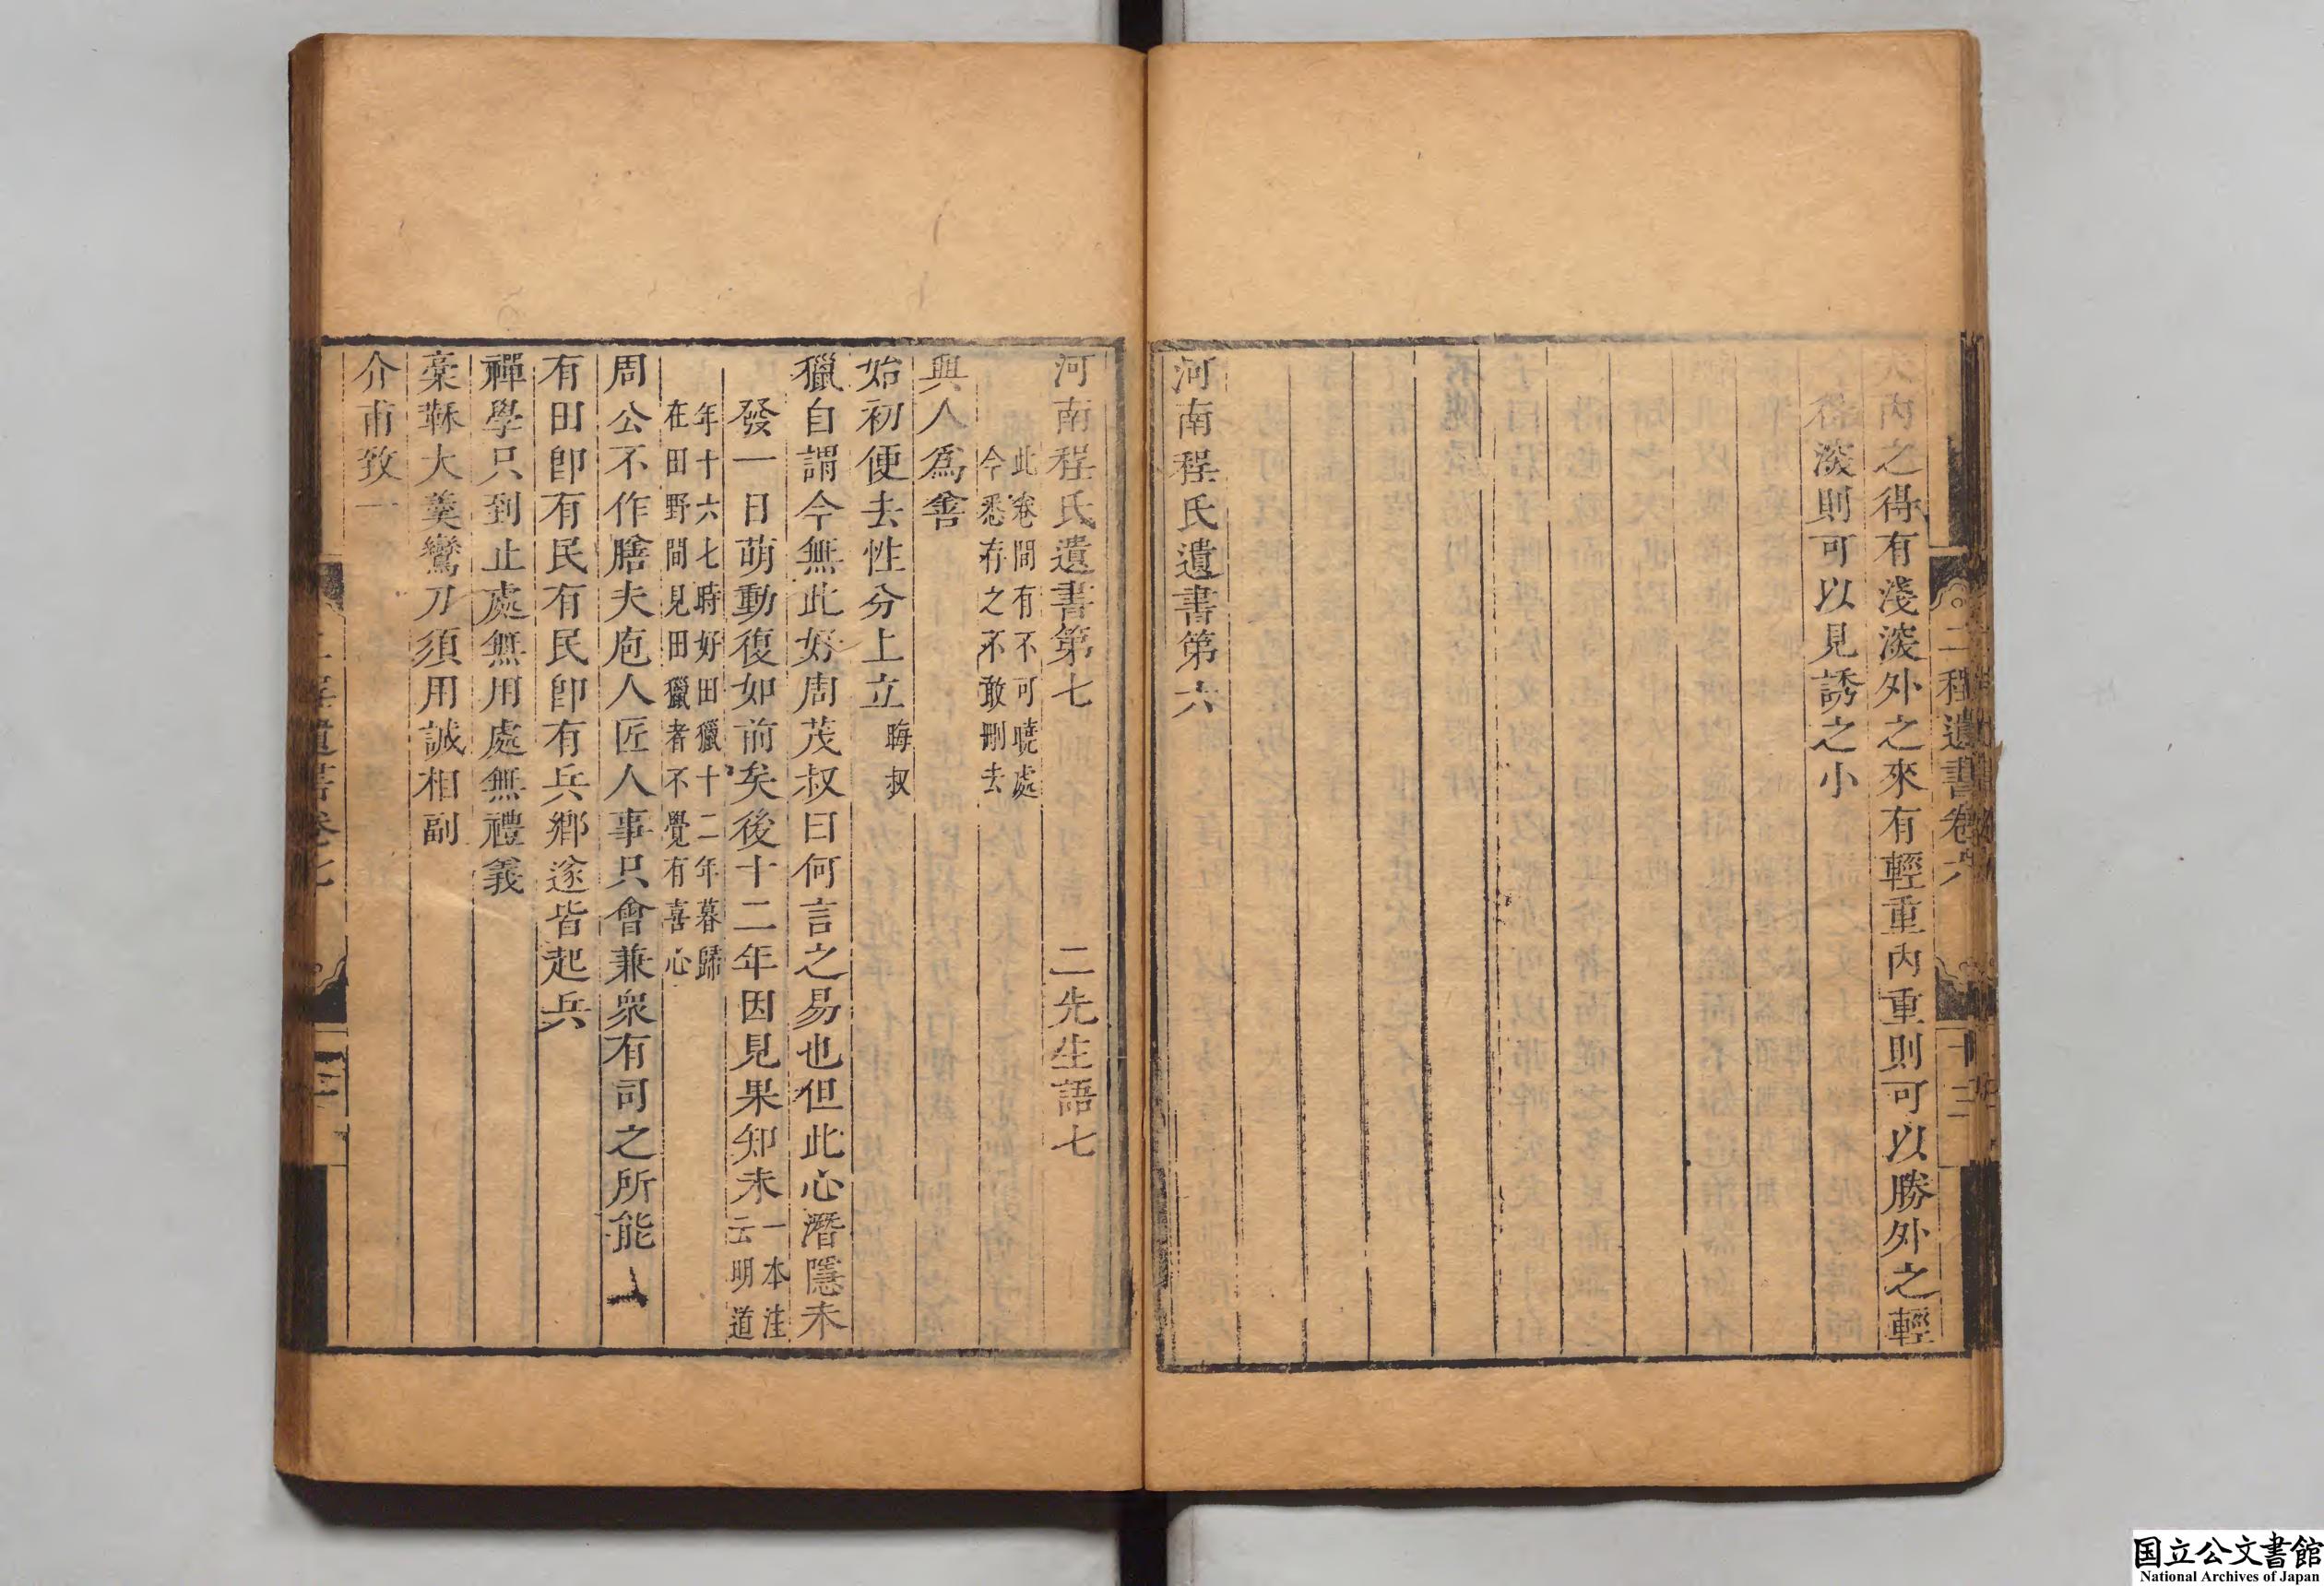 二程遺書卷六
十三
大內之得有淺深外之來有輕重內重則可以勝外之輕
得深則可以見誘之小
河南程氏遺書第六
河南程氏遺書第七 二先生語七
此卷間有不可曉處
今悉存之不敢刪去
與人爲善
始初便去性分上立 晦叔
獵自謂今無此好周茂叔曰何言之易也但此心潛隱未
發一日萌動復如前矣後十二年因見果知未 一本注
云明道
年十六七時好田獵十二年暮歸
在田野間見田獵者不覺有喜心
周公不作膳夫庖人匠人事只會兼衆有司之所能
有田卽有民有民卽有兵鄉遂皆起兵
禪學只到止處無用處無禮義
槀鞂大羹鸞刀須用誠相副
介甫致一
二程遺書卷七
国立公文書館
National Archives of Japan